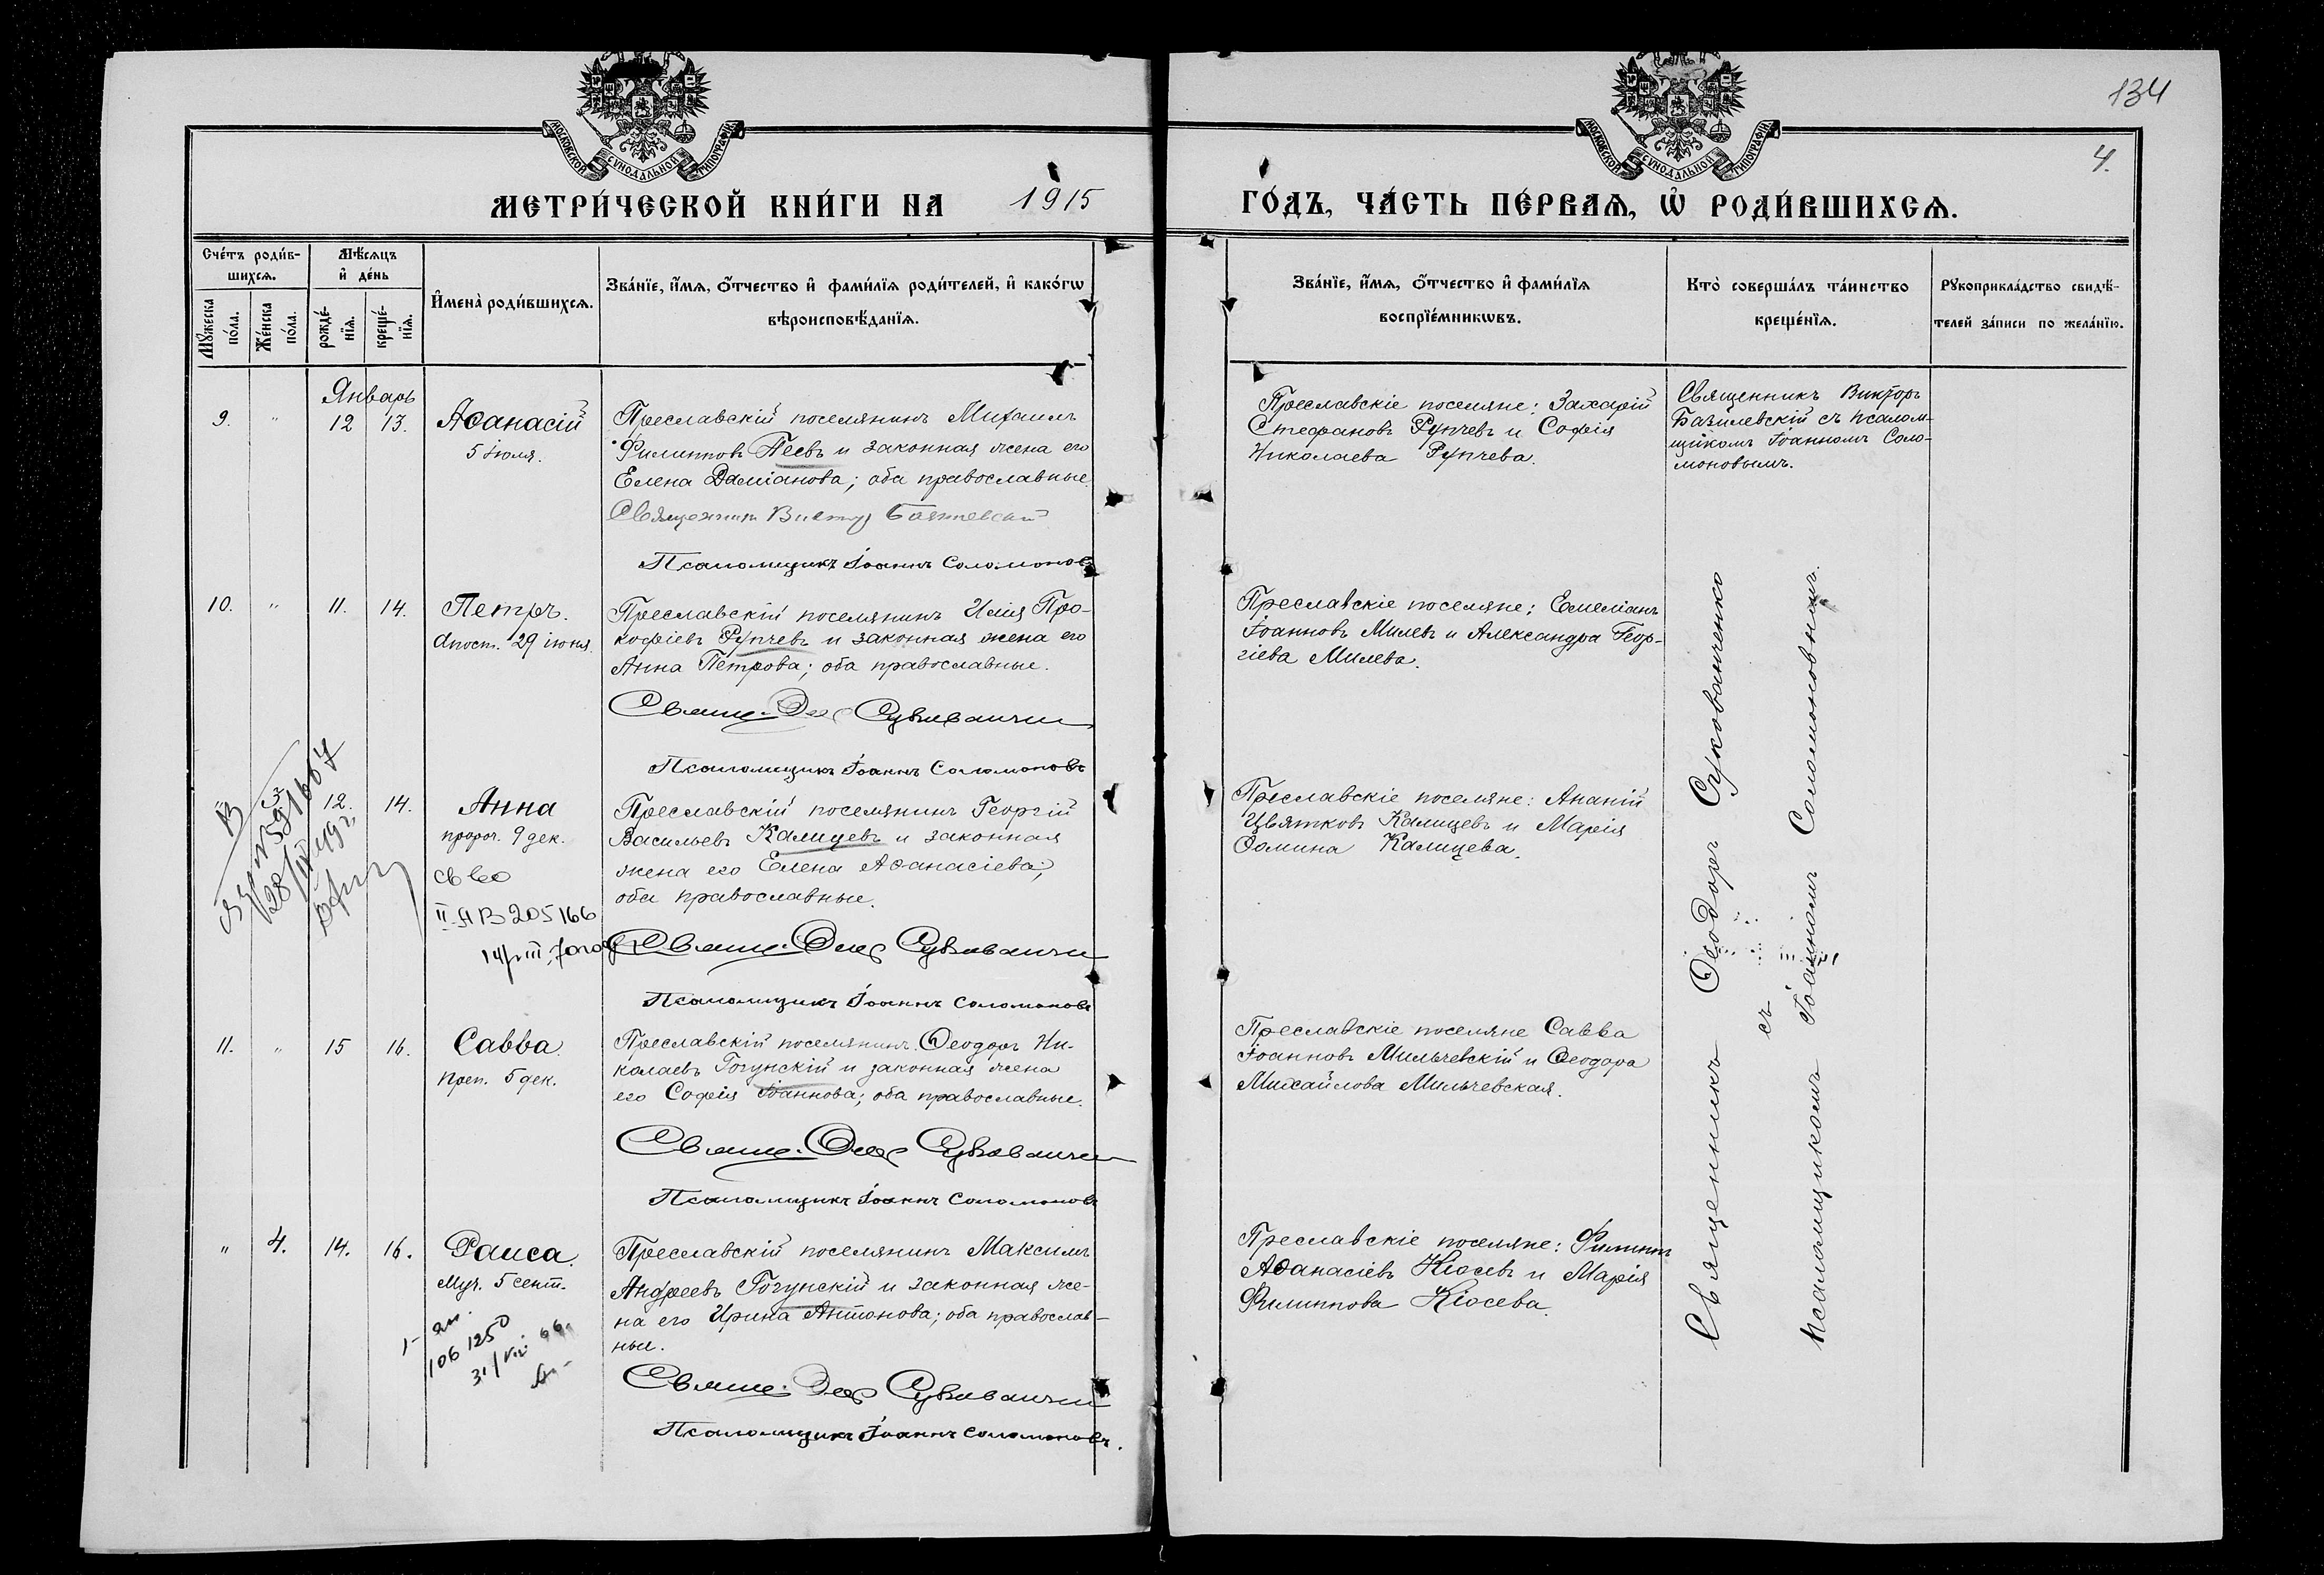 134
4.
МОСКОВСКОЙ СУНОДАЛЬНОЙ ТИПОГРАФІИ
МОСКОВСКОЙ СУНОДАЛЬНОЙ ТИПОГРАФІИ
МЕТРИ́ЧЕСКОЙ КНИ́ГИ НА 1915
ГО́ДЪ, ЧА́СТЬ ПЕ́РВАѦ, Ѡ҆ РОДИ́ВШИХСѦ.
Сче́тъ роди́в-
шихсѧ.
Мꙋ́жеска по́ла.
Же́нска по́ла.
Мѣ́сѧцъ
и҆ де́нь
рожде́-
нїѧ.
креще́-
нїѧ.
И҆мена̀ роди́вшихсѧ.
Зва́нїе, и҆́мѧ, ѻ҆́тчество и҆ фами́лїѧ роди́телей, и҆ како́гѡ
вѣроисповѣ́данїѧ.
Зва́нїе, и҆́мѧ, ѻ҆́тчество и҆ фами́лїѧ
воспрїе́мникѡвъ.
Кто̀ соверша́лъ та́инство
креще́нїѧ.
Рꙋкоприкла́дство свидѣ́-
телей за́писи по жела́нїю.
Январь
9. " 12 13. Аѳанасій
5 іюля.
Преславскій поселянинъ Михаилъ
Филипповъ Пеевъ и законная жена его
Елена Даміанова; оба православные.
Священникъ Викторъ Базилевскій
Псаломщикъ Іоаннъ Соломоновъ
Преславскіе поселяне: Захарій
Стефановъ Рупчевъ и Софія
Николаева Рупчева.
Священникъ Викторъ
Базилевскій съ псалом-
щикомъ Іоанномъ Соло-
моновымъ.
10. " 11. 14. Петръ.
Апост. 29 іюня.
Преславскій поселянинъ Илія Про-
кофіевъ Рупчевъ и законная жена его
Анна Петрова; оба православные.
Свящ. Ѳеод. Сукованченко
Псаломщикъ Іоаннъ Соломоновъ
Преславскіе поселяне: Емеліанъ
Іоанновъ Милевъ и Александра Геор-
гіева Милева.
" 3. 12. 14. Анна
пророч. 9 дек.
св во
II-АВ 205166
Преславскій поселянинъ Георгій
Васильевъ Калицевъ и законная
жена его Елена Аѳанасіева;
оба православные.
Свящ. Ѳеод. Сукованченко
Псаломщикъ Іоаннъ Соломоновъ
Преславскіе поселяне: Ананій
Цвятковъ Калицевъ и Марія
Ѳомина Калицева.
11. " 15 16. Савва.
Преп. 5 дек.
Преславскій поселянинъ Ѳеодоръ Ни-
колаевъ Гогунскій и законная жена
его Софія Іоаннова; оба православные.
Свящ. Ѳеод. Сукованченко
Псаломщикъ Іоаннъ Соломоновъ
Преславскіе поселяне Савва
Іоанновъ Мильчевскій и Ѳеодора
Михайлова Мильчевская.
" 4. 14. 16. Раиса.
Муч. 5 сент.
106 1250
Преславскій поселянинъ Максимъ
Андреевъ Гогунскій и законная же-
на его Ирина Антонова; оба православ-
ные.
Свящ. Ѳеод. Сукованченко
Псаломщикъ Іоаннъ Соломоновъ.
Преславскіе поселяне: Филиппъ
Аѳанасіевъ Кіосевъ и Марія
Филиппова Кіосева.
Священникъ Ѳеодоръ Сукованченко
съ
псаломщикомъ Іоанномъ Соломоновымъ.